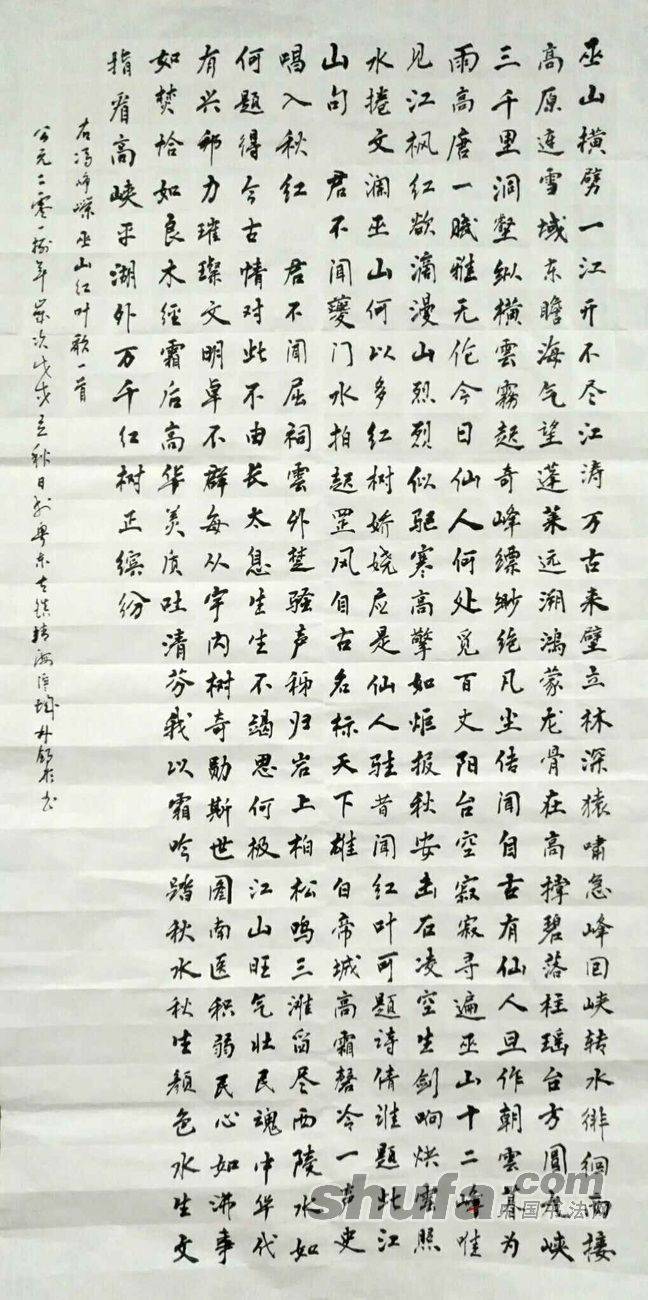 巫山横劈一江开不尽江涛万古来壁立林深猿啸急峰回峡转水徘徊西接
高原连雪域东瞻海气望蓬莱远溯鸿蒙龙骨在高撑碧落柱瑶台方圆大峡
三千里洞壑纵横云雾起奇峰缥缈绝凡尘传闻自古有仙人旦作朝云暮为
雨高唐一赋雅无伦今日仙人何处觅百丈阳台空寂寂寻遍巫山十二峰唯
见江枫红欲滴漫山烈烈似驱寒高擎如炬报秋安击石凌空生剑响烘云照
水捲文澜巫山何以多红树娇娆应是仙人驻昔闻红叶可题诗倩谁题此江
山句 君不闻夔门水拍起罡风自古名标天下雄白帝城高霜磬冷一声史
唱入秋红 君不闻屈祠雲外楚骚声秭归岩上柏松鸣三滩留尽西陵水如
何题得今古情对此不由长太息生生不竭思何极江山旺气壮民魂中华代
有兴邦力璀璨文明卓不群每从宇内树奇勋斯世图南医积弱民心如沸事
如焚恰如良木经霜后高华美质吐清芬我以霜吟踏秋水秋生颜色水生文
指看高峡平湖外万千红树正缤纷
右冯峥嵘巫山红叶歌一首
公元二零一捌年岁次戊戌立秋日于粤东古镇
shufa.com
中国书法网